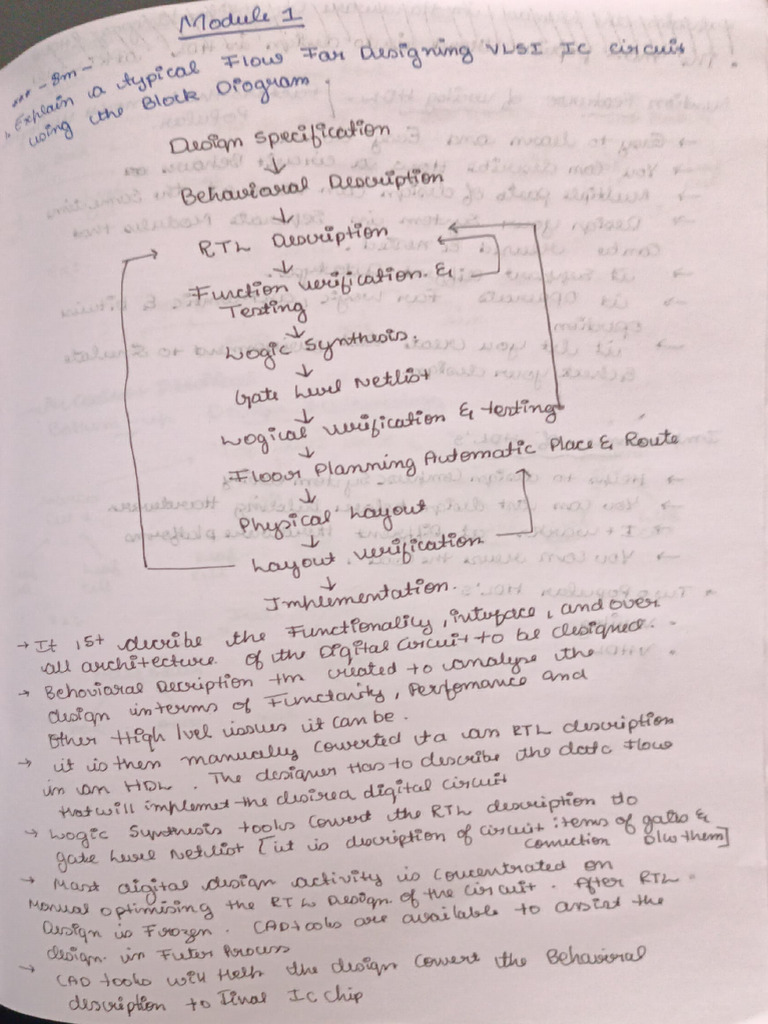 Module 1
*** - 8m -
Explain a typical Flow For Designing VLSI IC circuit
using the Block Diogram
Design Specification
Behavioral Description
RTL Description
Function verification &
Testing
Logic Synthesis.
Gate Level Netlist
Logical verification & testing
Floor Planning Automatic Place & Route
Physical Layout
Layout verification
Implementation.
→ It 1st decribe the Functionality, interface, and over
all architecture of the Digital Circuit to be designed.
→ Behavioral Decription thn created to analyse the
design interms of Functarity, Perfomance and
Other High lvel issues it can be.
→ it is then manually coverted to an RTL description
in an HDL. The designer Has to describe the data flow
that will implemet the desired digital circuit
→ Logic Synthesis tools covert the RTL description to
gate level Netlist [it is discription of circuit items of gates &
conection b/w them]
→ Most digital design activity is concentrated on
Manual optimising the RTL Design of the circuit. After RTL
Design is Frozen. CAD tools are available to assist the
design in Futer Process
→ CAD tools with Help the design covert the Behavioral
description to Final IC chip